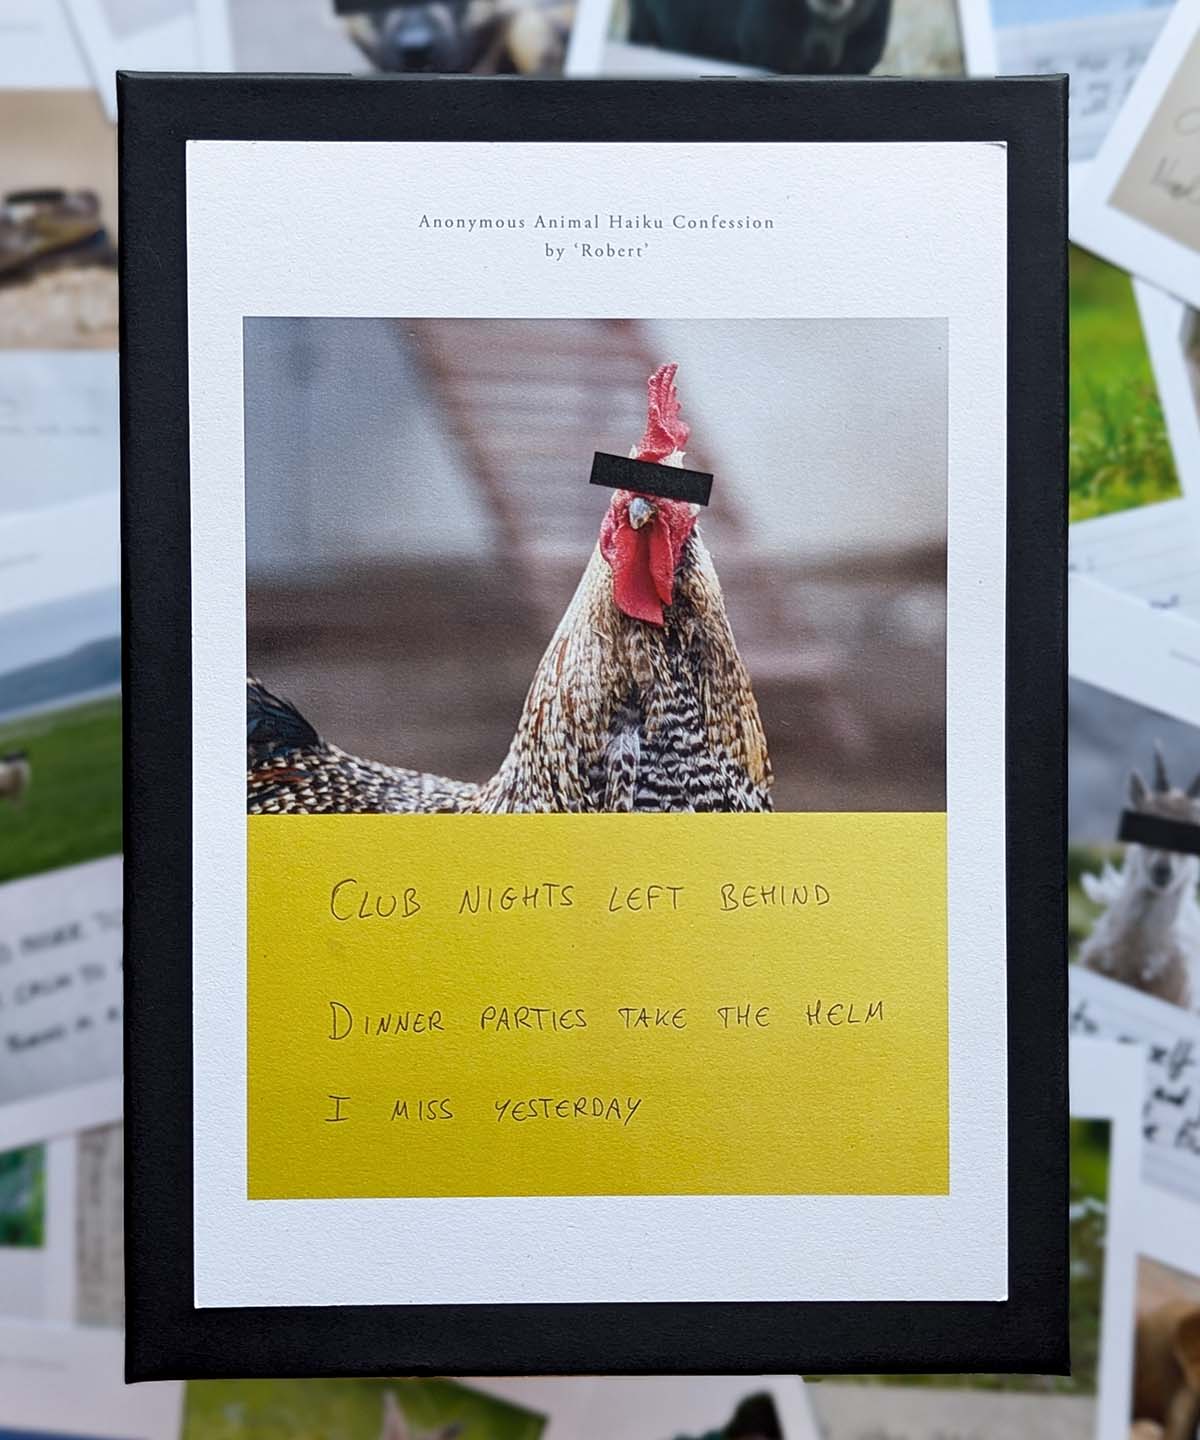 Anonymous Animal Haiku Confession
by ‘Robert’
CLUB NIGHTS LEFT BEHIND
DINNER PARTIES TAKE THE HELM
I MISS YESTERDAY